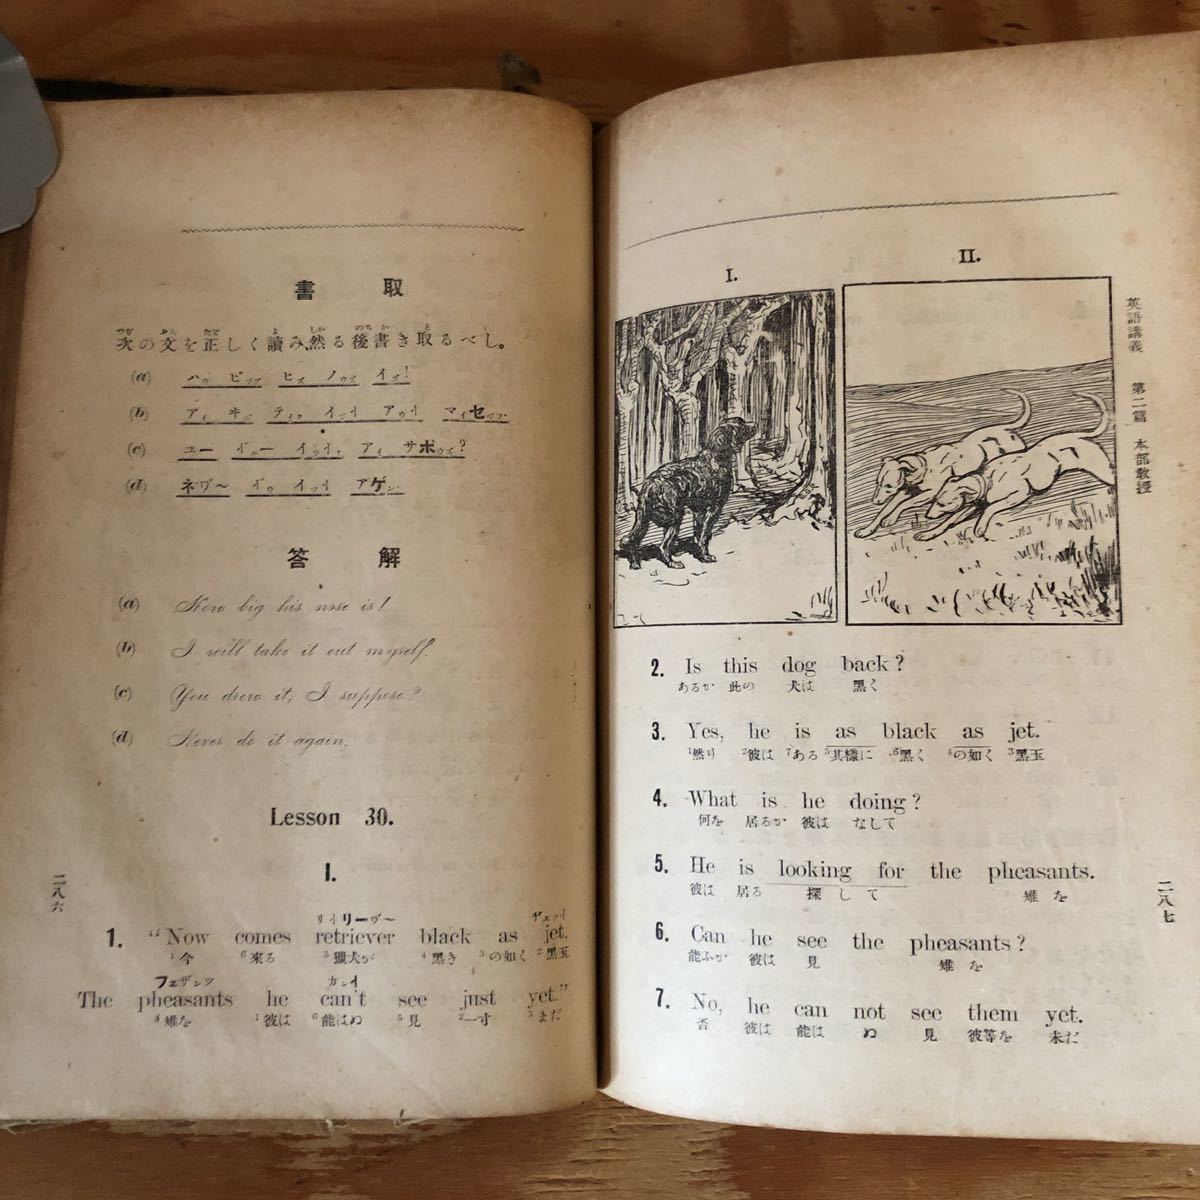 書取
次の文を正しく讀み、然る後書き取るべし。
(a)
(b)
(c)
(d)
答解
(a) How big his nose is!
(b) I will take it out myself.
(c) You drew it, I suppose?
(d) Never do it again.
Lesson 30.
I.
1. “Now comes retriever black as jet.
1今 6來る 5獵犬が 4黑き 3の如く 2黑玉
フェザンツ
The pheasants he can't see just yet.”
4雉を 1彼は 6能はぬ 5見 2一寸 3まだ
二八六
I.
II.
英語講義 第二篇 本部敎授
2. Is this dog back?
あるか 此の 犬は 黑く
3. Yes, he is as black as jet.
1然り 2彼は 7ある 5其樣に 6黑く 4の如く 3黑玉
4. What is he doing?
何を 居るか 彼は なして
5. He is looking for the pheasants.
彼は 居る 探して 雉を
6. Can he see the pheasants?
能ふか 彼は 見 雉を
7. No, he can not see them yet.
否 彼は 能は ぬ 見 彼等を 未だ
二八七